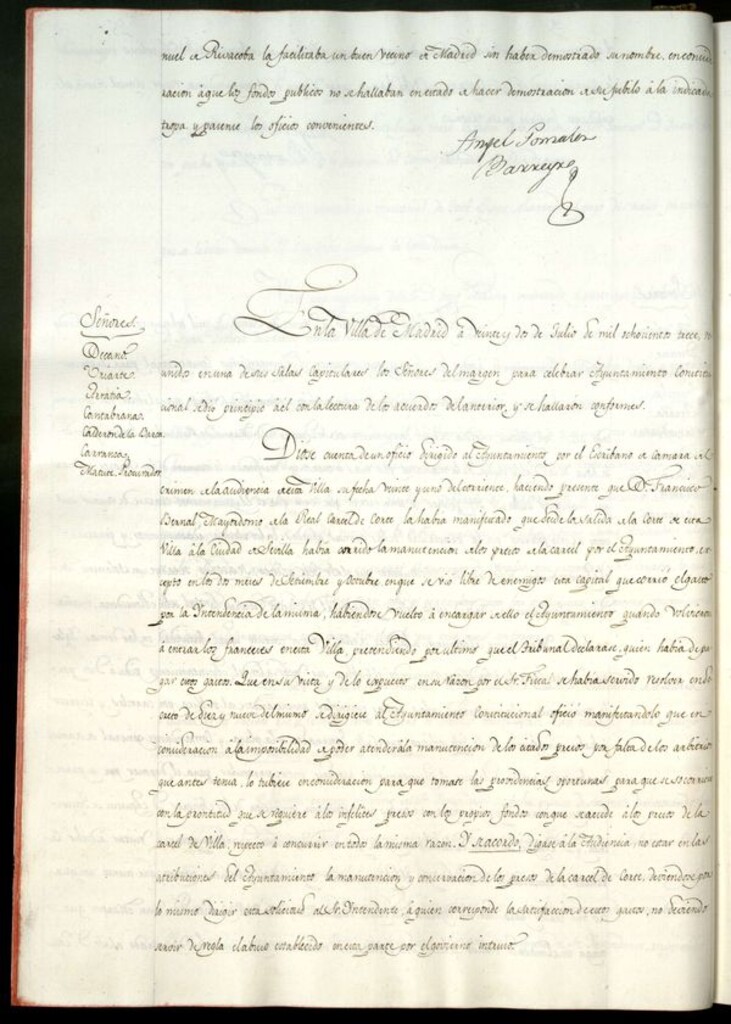 nuel de Rivacoba la facilitaba un buen vecino de Madrid sin haber demostrado su nombre, en conside
racion à que los fondos publicos no se hallaban en estado de hacer demostracion de su jubilo à la indicada
tropa y pasense los oficios convenientes.
Angel Gonzalez
Barreyro
Señores.
Decano.
Uriarte.
Peratia.
Cantabrana.
Calderon de la Barca.
Carranca.
Matute. Procurador
En la Villa de Madrid à veinte y dos de Julio de mil ochocientos trece, re
unidos en una de sus Salas Capitulares los Señores del margen para celebrar Ayuntamiento Constitu
cional se dió principio à él con la lectura de los acuerdos del anterior, y se hallaron conformes.
Diose cuenta de un oficio dirigido al Ayuntamiento por el Escribano de Camara del
crimen de la audiencia de esta Villa su fecha veinte y uno del corriente, haciendo presente que Dn. Francisco
Bernal, Mayordomo de la Real Carcel de Corte la habia manifestado que desde la salida de la Corte de esta
Villa à la Ciudad de Sevilla habia corrido la manutencion de los presos de la carcel por el Ayuntamiento, ex
cepto en los dos meses de Setiembre y Octubre en que se vió libre de enemigos esta capital que corrió el gasto
por la Intendencia de la misma, habiendose vuelto à encargar de ello el Ayuntamiento quando volvieron
à entrar los franceses en esta Villa, pretendiendo por ultimo que el Tribunal declarase, quien habia de pa
gar estos gastos. Que en su vista y de lo expuesto en su razon por el Sr. Fiscal se habia servido resolver en de
creto de diez y nueve del mismo se dirigiese al Ayuntamiento Constitucional oficio manifestandolo que en
consideracion à la imposibilidad de poder atender à la manutencion de los citados presos por falta de los arbitrios
que antes tenia, lo tubiese en consideracion para que tomase las providencias oportunas, para que se socorriese
con la prontitud que se requiere à los infelices presos con los propios fondos con que se acude à los presos de la
carcel de Villa, respecto à concurrir en todos la misma razon. Y se acordó, digase à la Audiencia, no estar en las
atribuciones del Ayuntamiento la manutencion y conservacion de los presos de la carcel de Corte, deviendose por
lo mismo dirigir esta solicitud al Sr. Yntendente, à quien corresponde la satisfaccion de estos gastos, no deviendo
servir de regla el abuso establecido en esta parte por el govierno intruso.